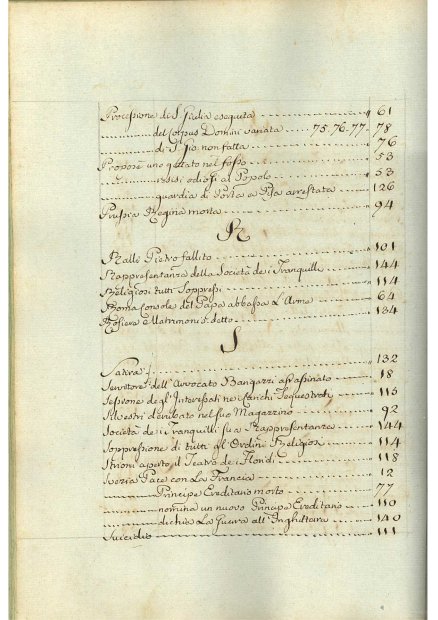 Processione di S. Giulia eseguita 61
del Corpus Domini variata 75. 76. 77. 78
di S. Gio. non fatta 76
Propose uno gettato nel fosso 53
resisi odiosi al Popolo 53
guardia di Porta a Pisa arrestata 126
Prussia Regina morta 94
R
Ralli Pietro fallito 101
Rappresentanza della Società dei Tranquilli 144
Religiosi tutti Soppressi 114
Roma Console del Papa abbassa l'Arme 64
Rosiera e Matrimoni 134
S
Satira 132
Servitore dell'Avvocato Bangarri assassinato 18
Sessione degl'Interessati ne Carichi Sequestrati 115
Silvestri derubato nel suo Magazzino 92
Società dei Tranquilli sua Rappresentanza 144
Soppressione di tutti gl'Ordini Religiosi 114
Strioni aperto il Teatro dei Floridi 118
Svezia Pace con La Francia 12
Principe Ereditario morto 77
nomina un nuovo Principe Ereditario 110
dichia La Guerra all'Inghilterra 140
Suicidio 111